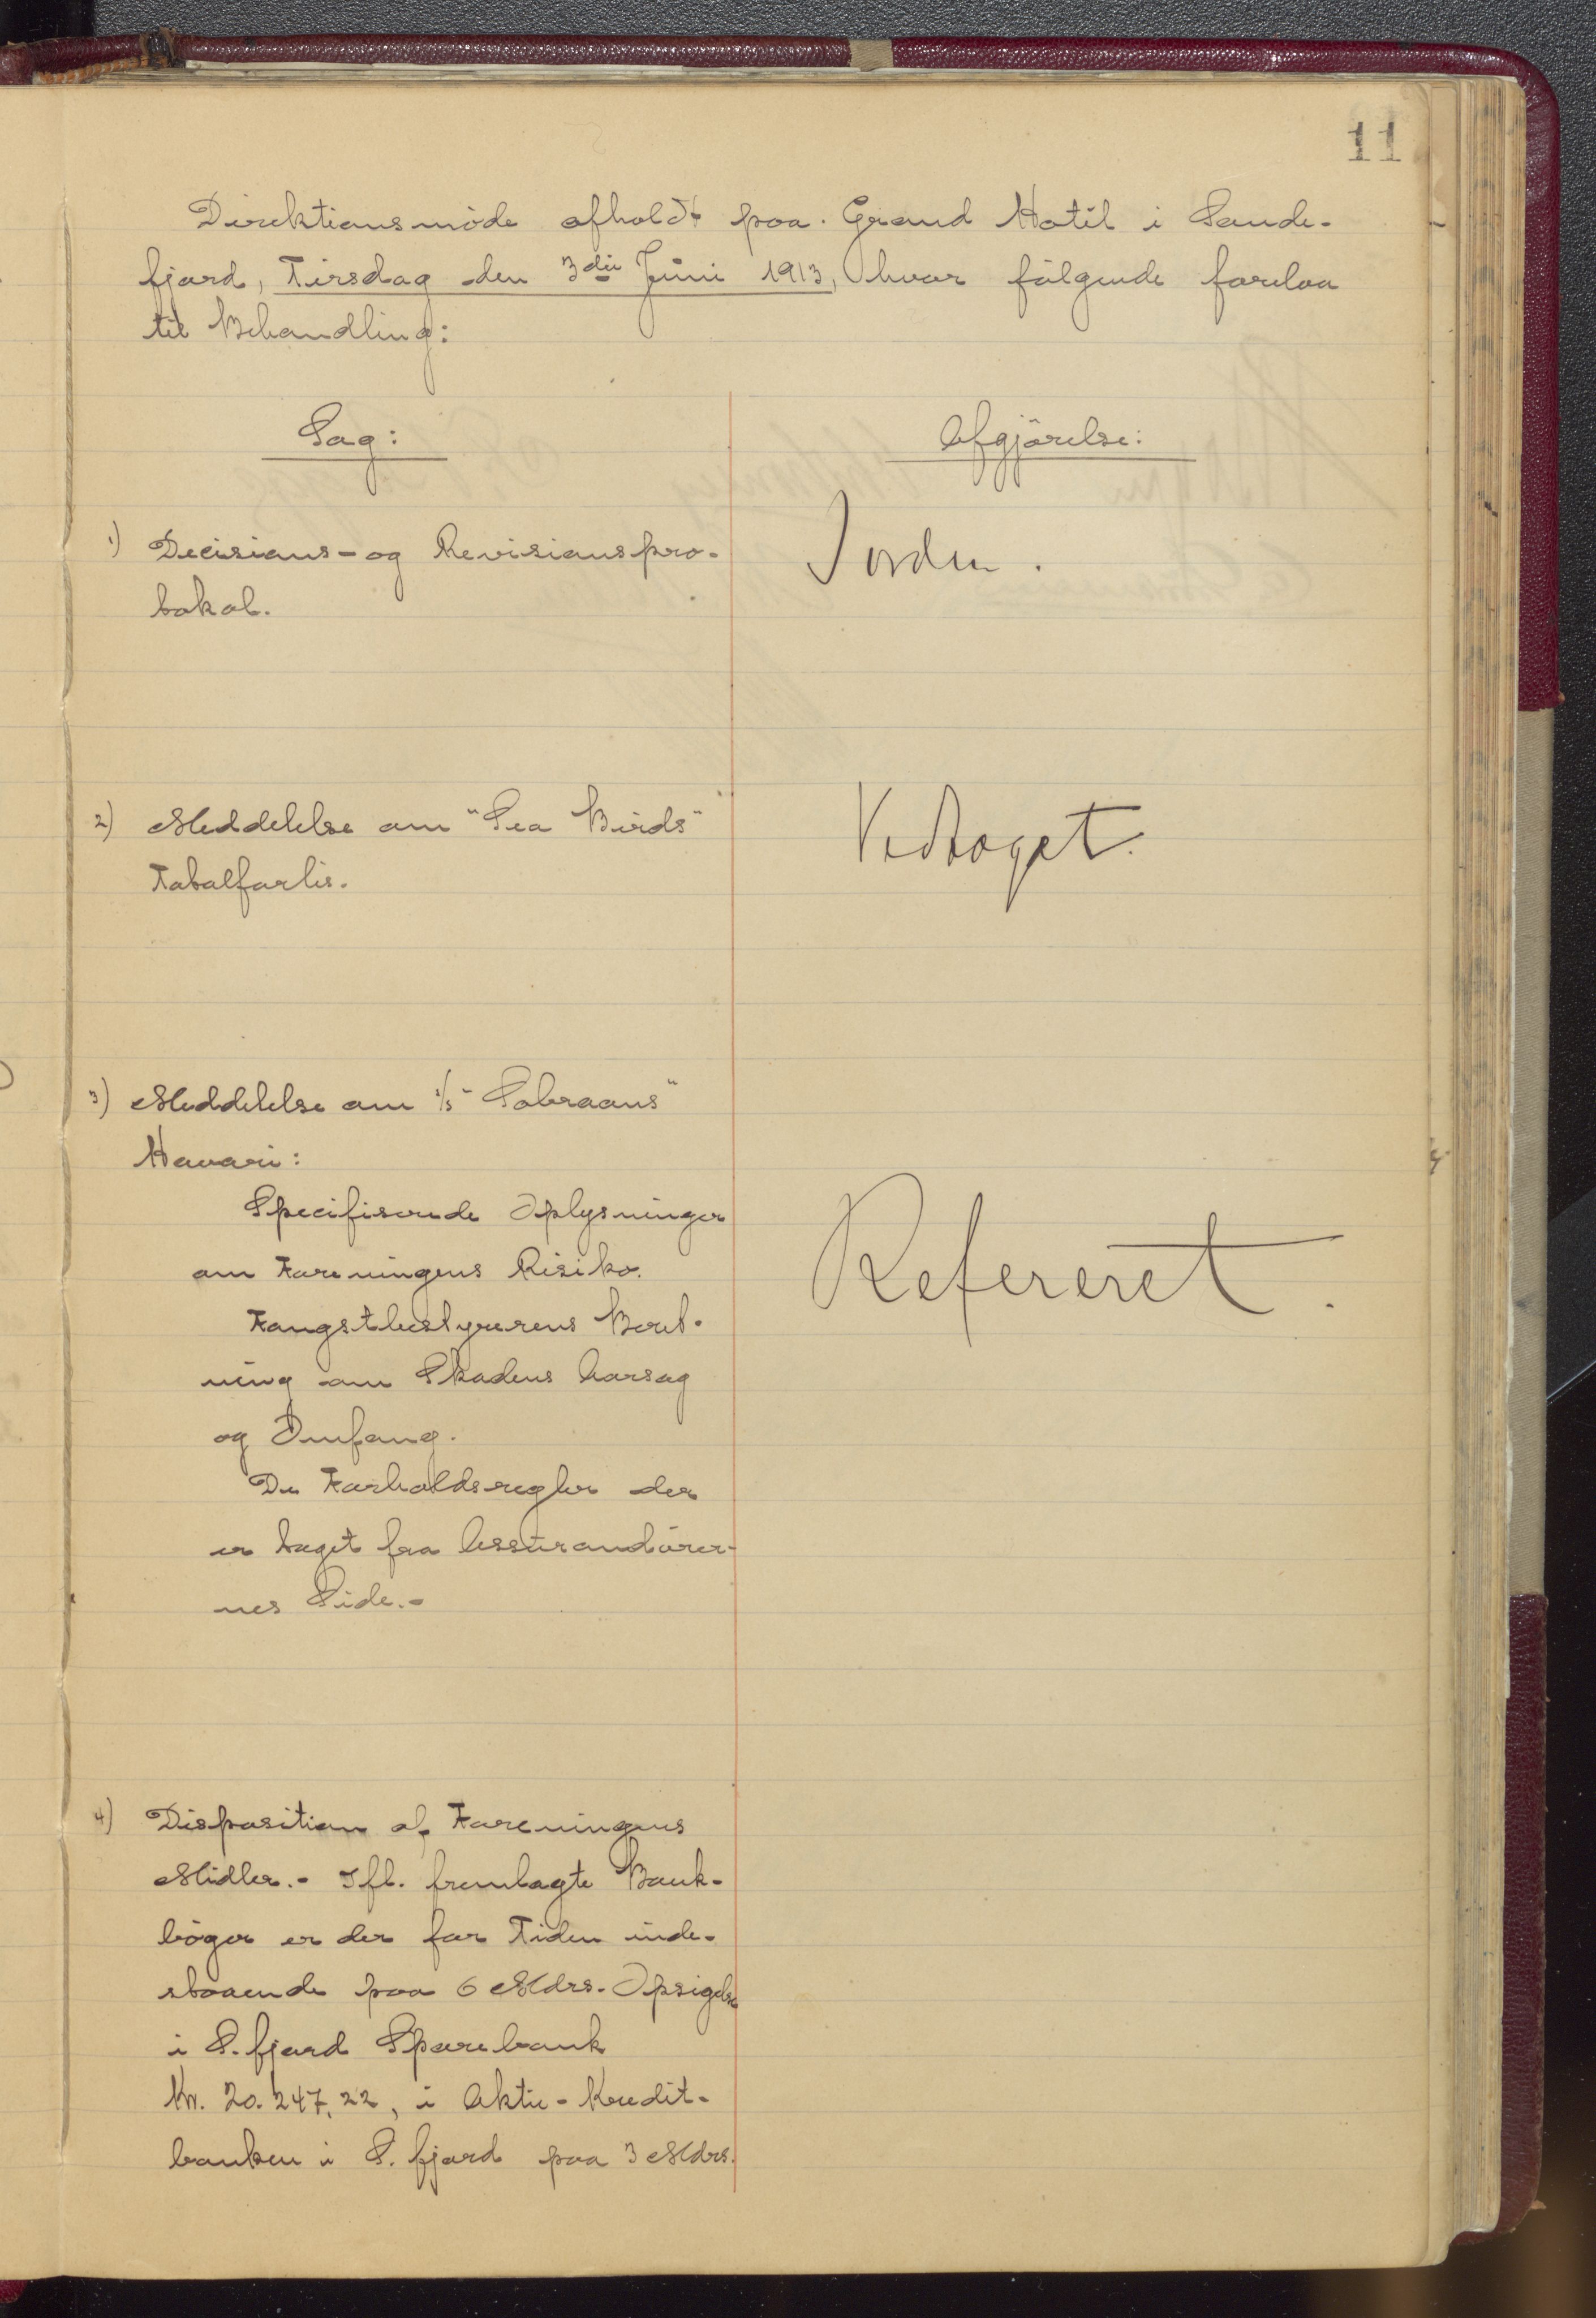 11
Direktionsmöde afholdt paa Grand Hotel i Sande-
fjord, Tirsdag den 3die Juni 1913, hvor fölgende forelaa
til Behandling:
Sag:
Afgjörelse:
1) Decisions- og Revisionspro-
tokol.
Iorden.
2) Meddelelse om "Sea Birds"
Totalforlis.
Vedtoget.
3) Meddelelse om s/s "Sobraons"
Havari:
Specifiserede Oplysninger
om Foreningens Risiko.
Fangstbestyrerens Beret-
ning om Skadens Aarsag
og Omfang.
De Forholdsregler der
er taget fra Assurandörer-
nes Side.-
Refereret.
4) Disposition af Foreningens
Midler.- Ifl. fremlagte Bank-
böger er der for Tiden inde-
staaende paa 6 Mdrs. Opsigelse
i S.fjord Sparebank
Kr. 20.247,22, i Aktie-Kredit-
banken i S.fjord paa 3 Mdrs.